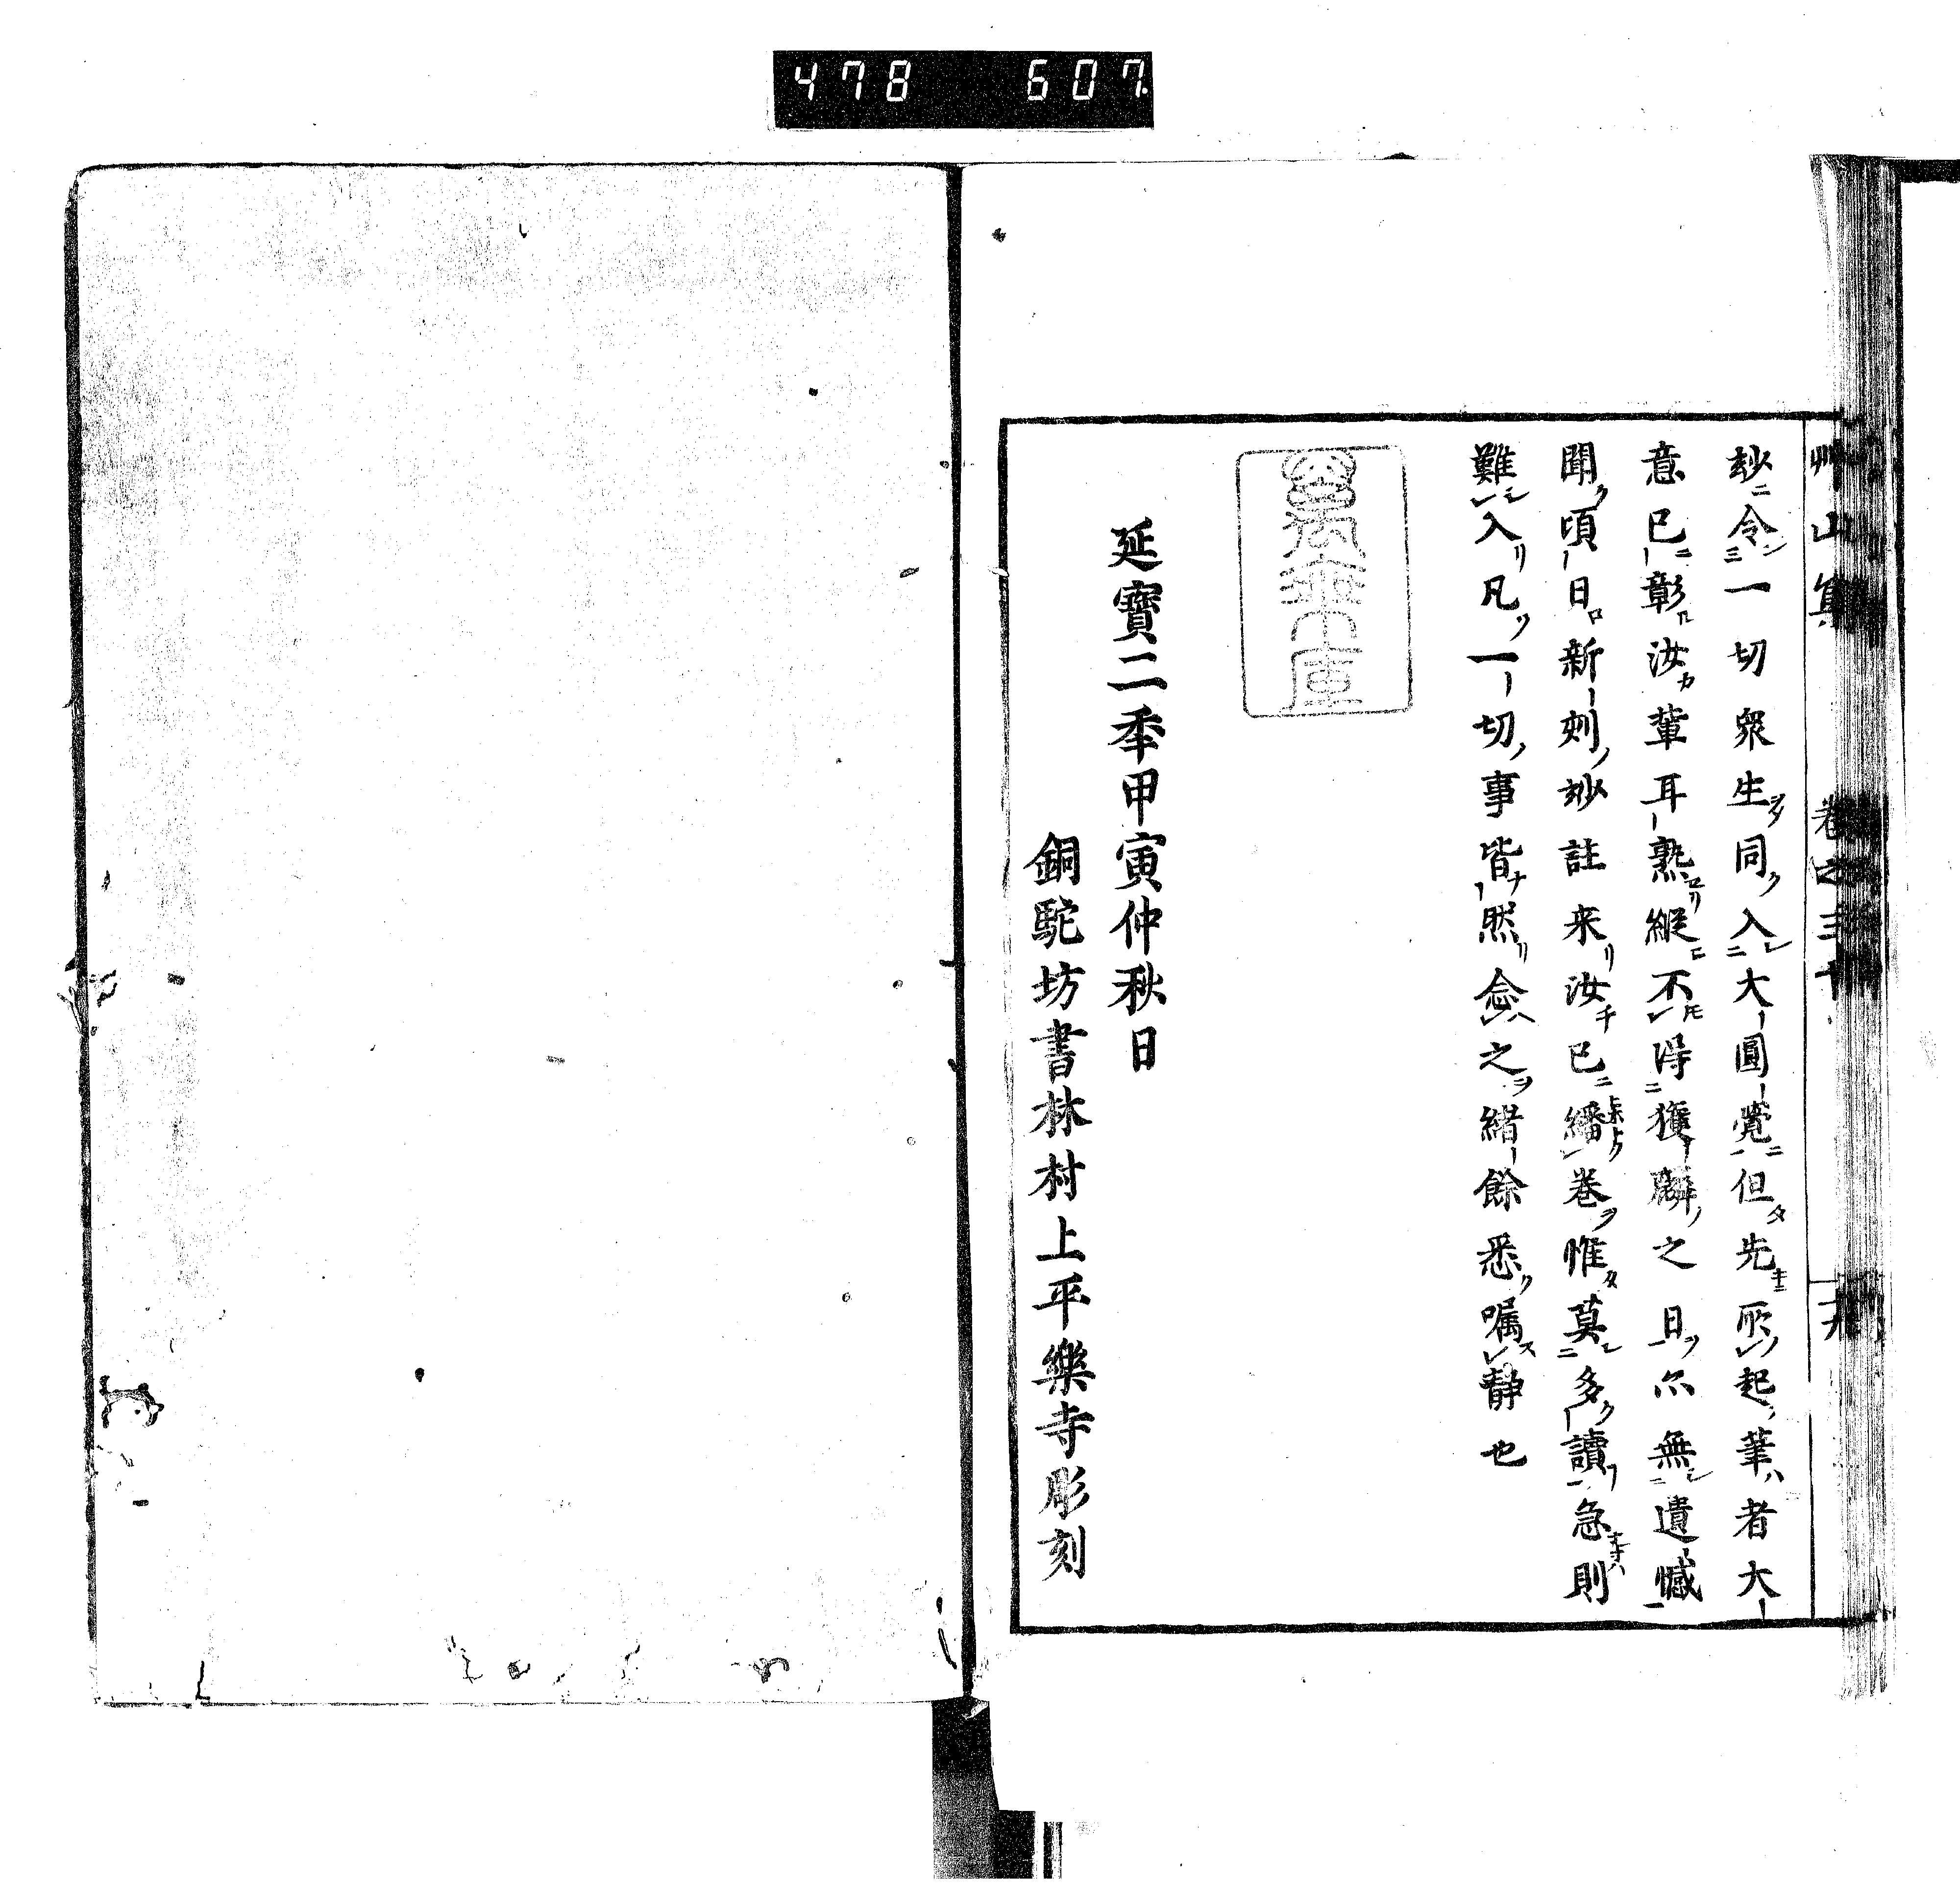 478 607
艸山集 卷之三十 十九
妙令一切衆生同入大圓覺但先所起筆者大
意已彰汝輩耳熟縱不得獲麟之日亦無遺憾
聞頃日新刻妙註来汝已繙卷惟莫多讀急則
難入凡一切事皆然念之緒餘悉嘱静也
延寶二秊甲寅仲秋日
銅駝坊書林村上平樂寺彫刻